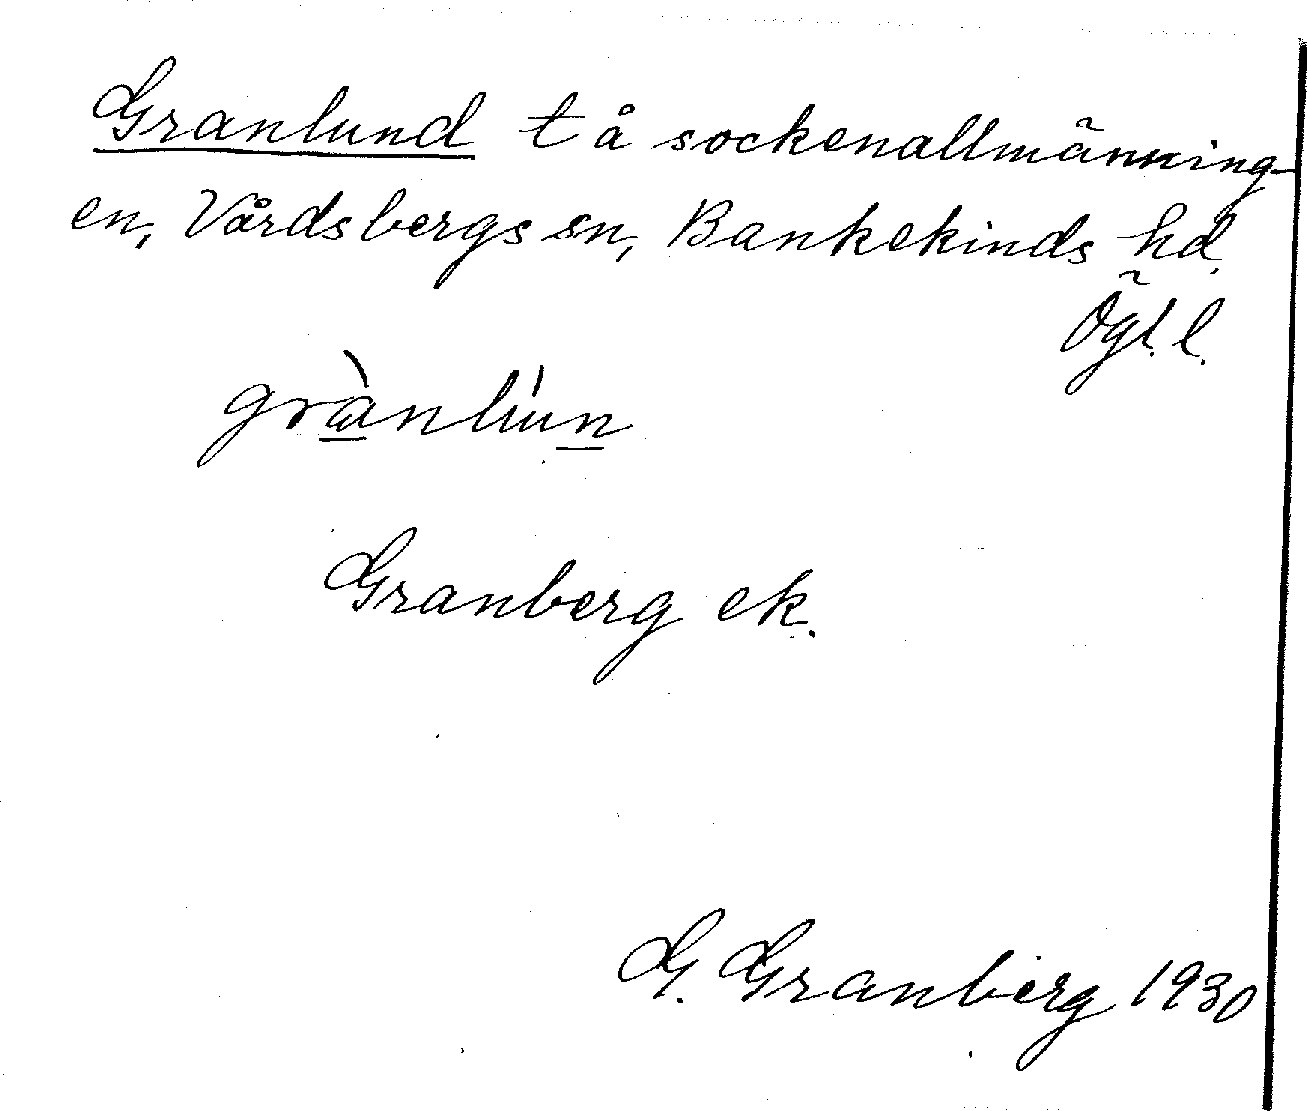 Granlund t å sockenallmänning-
en, Vårdsbergs sn, Bankekinds hd
Ögl. l.
grànlún
Granberg ek.
G. Granberg 1930